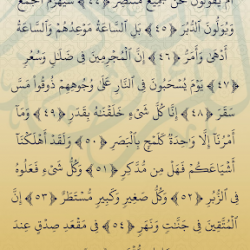 أَمْ يَقُولُونَ نَحْنُ جَمِيعٌ مُّنتَصِرٌ ﴿٤٤﴾ سَيُهْزَمُ الْجَمْعُ
وَيُوَلُّونَ الدُّبُرَ ﴿٤٥﴾ بَلِ السَّاعَةُ مَوْعِدُهُمْ وَالسَّاعَةُ
أَدْهَىٰ وَأَمَرُّ ﴿٤٦﴾ إِنَّ الْمُجْرِمِينَ فِي ضَلَالٍ وَسُعُرٍ
﴿٤٧﴾ يَوْمَ يُسْحَبُونَ فِي النَّارِ عَلَىٰ وُجُوهِهِمْ ذُوقُوا مَسَّ
سَقَرَ ﴿٤٨﴾ إِنَّا كُلَّ شَيْءٍ خَلَقْنَاهُ بِقَدَرٍ ﴿٤٩﴾ وَمَا
أَمْرُنَا إِلَّا وَاحِدَةٌ كَلَمْحٍ بِالْبَصَرِ ﴿٥٠﴾ وَلَقَدْ أَهْلَكْنَا
أَشْيَاعَكُمْ فَهَلْ مِن مُّدَّكِرٍ ﴿٥١﴾ وَكُلُّ شَيْءٍ فَعَلُوهُ
فِي الزُّبُرِ ﴿٥٢﴾ وَكُلُّ صَغِيرٍ وَكَبِيرٍ مُّسْتَطَرٌ ﴿٥٣﴾ إِنَّ
الْمُتَّقِينَ فِي جَنَّاتٍ وَنَهَرٍ ﴿٥٤﴾ فِي مَقْعَدِ صِدْقٍ عِندَ